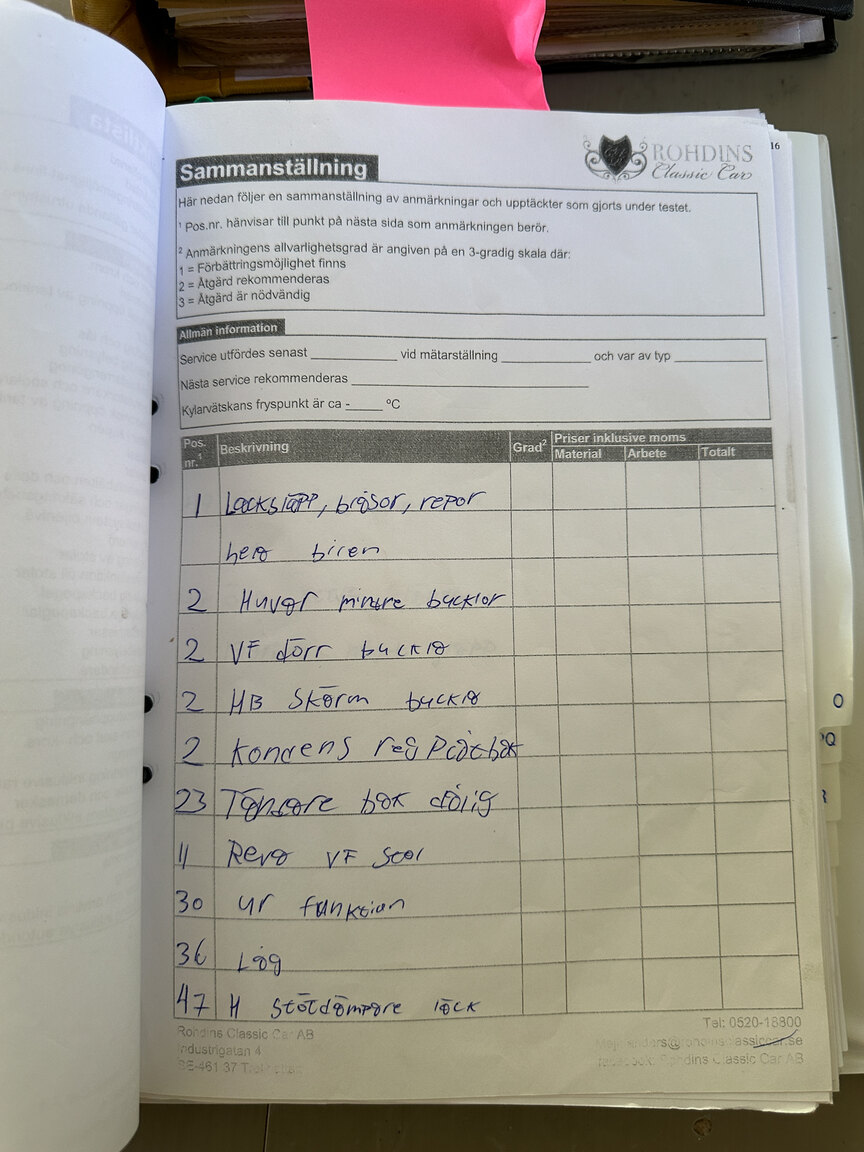 16
ROHDINS
Classic Car
Sammanställning
Här nedan följer en sammanställning av anmärkningar och upptäckter som gjorts under testet.
¹ Pos.nr. hänvisar till punkt på nästa sida som anmärkningen berör.
² Anmärkningens allvarlighetsgrad är angiven på en 3-gradig skala där:
1 = Förbättringsmöjlighet finns
2 = Åtgärd rekommenderas
3 = Åtgärd är nödvändig
Allmän information
Service utfördes senast ____________ vid mätarställning ____________ och var av typ ____________
Nästa service rekommenderas ____________
Kylarvätskans fryspunkt är ca -_____ °C
Pos. nr.¹ Beskrivning Grad² Priser inklusive moms
Material Arbete Totalt
1 Lacksläpp, blåsor, repor
hela bilen
2 Huvar mindre bucklor
2 VF dörr buckla
2 HB Skärm buckla
2 Kondens reg plåt bak
23 Tändare bak dålig
11 Reva VF stol
30 ur funktion
36 Låg
47 H stötdämpare läck
Rohdins Classic Car AB
Industrigatan 4
SE-461 37
Tel: 0520-18800
Classic Car AB
O
Q